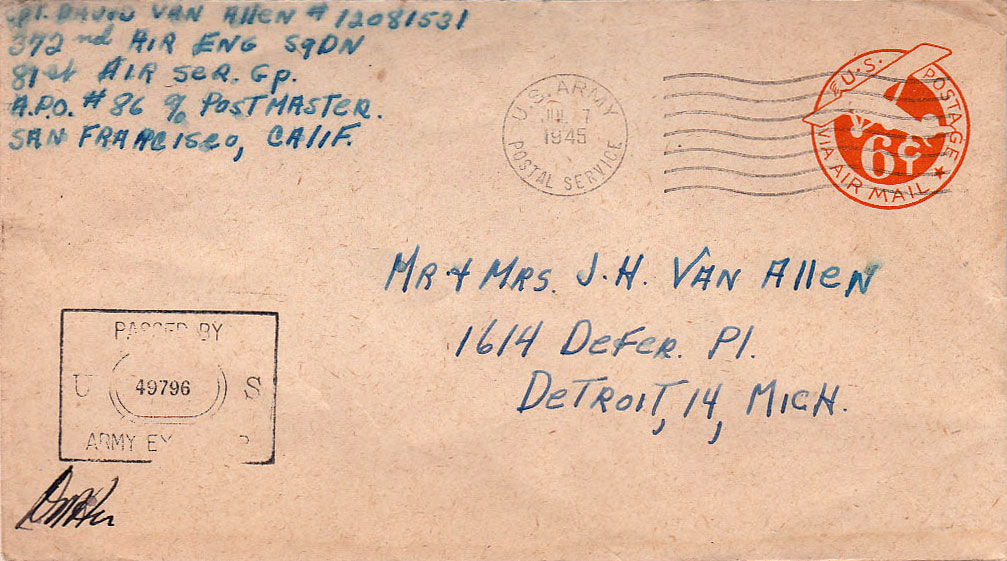 Cpl. DAVID VAN Allen # 12081531
372nd AIR ENG SqDN
81st AIR SeR. Gp.
A.P.O. #86 % POSTMASTeR.
SAN FRANCISCO, CALIF.
U.S. ARMY
JUL 7
1945
POSTAL SERVICE
U.S. POSTAGE
6¢
VIA AIR MAIL
MR + MRS. J.H. VAN Allen
1614 DeFeR. Pl.
DeTROIT, 14, MICH.
PASSED BY
U 49796 S
ARMY EX